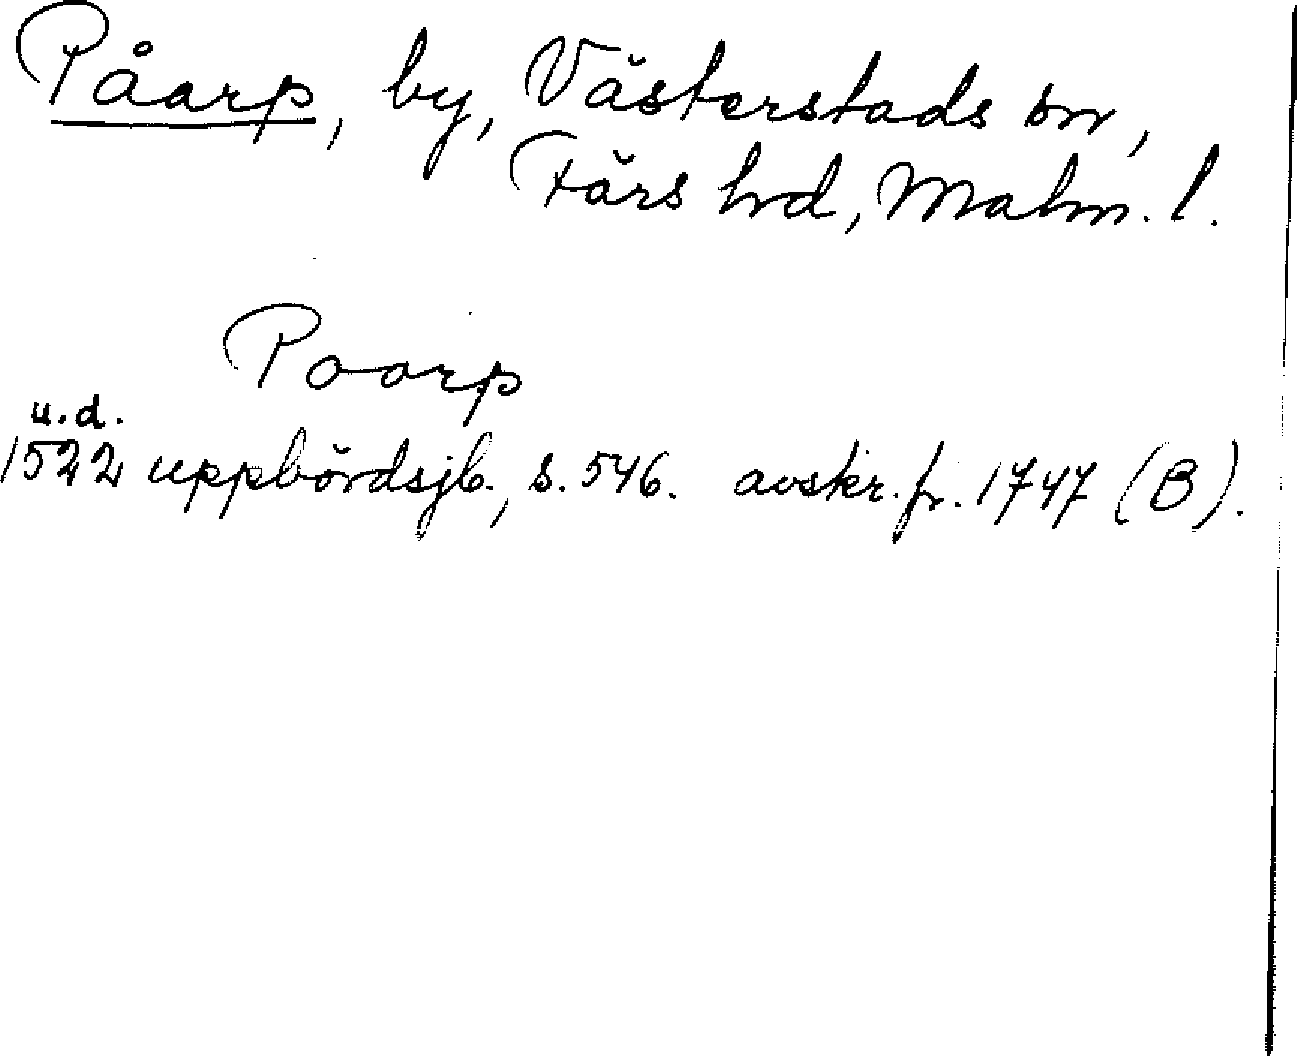 Påarp, by, Västerstads sn,
Färs hd, Malm. l.
Poorp
u.d.
1522 uppbördsjb., s. 546. avskr. fr. 1747 (B).